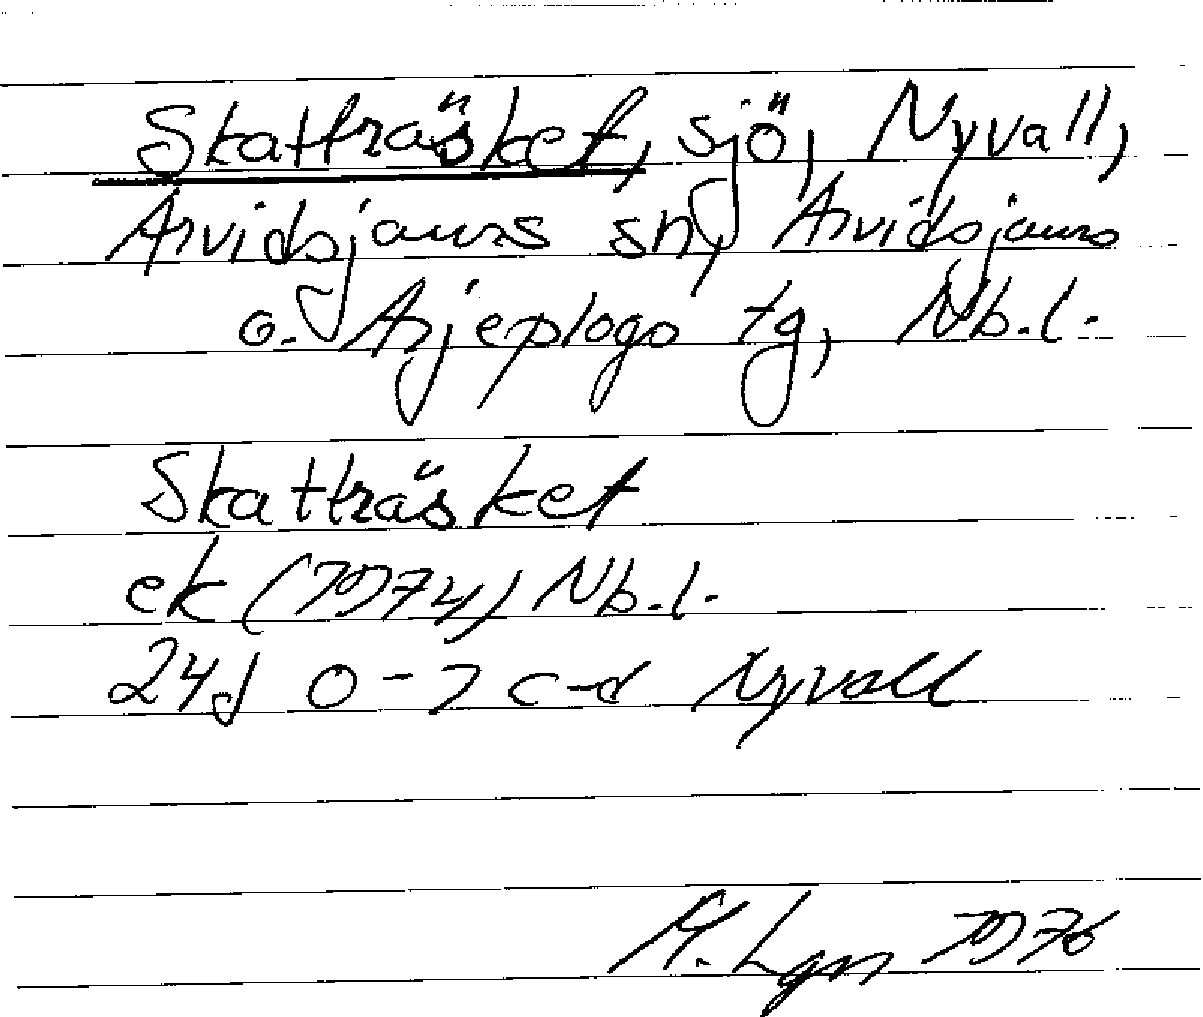 Skatträsket, sjö, Nyvall,
Arvidsjaurs sn, Arvidsjaurs
o. Arjeplogs tg, Nb.l.
Skatträsket
ek (1974) Nb.l.
24J 0-1 c-d Nyvall
M. Lgn 1976